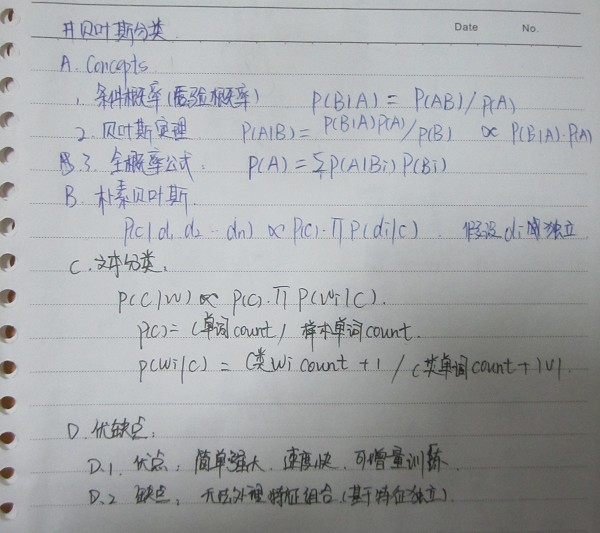 # 贝叶斯分类
Date No.
A. Concepts.
1. 条件概率(后验概率) P(B|A) = P(AB)/P(A)
2. 贝叶斯定理 P(A|B)= P(B|A)P(A)/P(B) ∝ P(B|A)·P(A)
3. 全概率公式. P(A) = ΣP(A|Bi)P(Bi)
B. 朴素贝叶斯.
P(c|d1 d2 ... dn) ∝ P(c)·∏P(di|c). 假设di间独立
C. 文本分类.
P(C|W) ∝ P(C).∏ P(Wi|C).
P(c)= C单词count/ 样本单词count.
P(Wi|C) = C类Wi count + 1 / C类单词count+|V|.
D. 优缺点:
D.1. 优点: 简单强大. 速度快. 可增量训练.
D.2 缺点: 无法处理特征组合(基于特征独立).